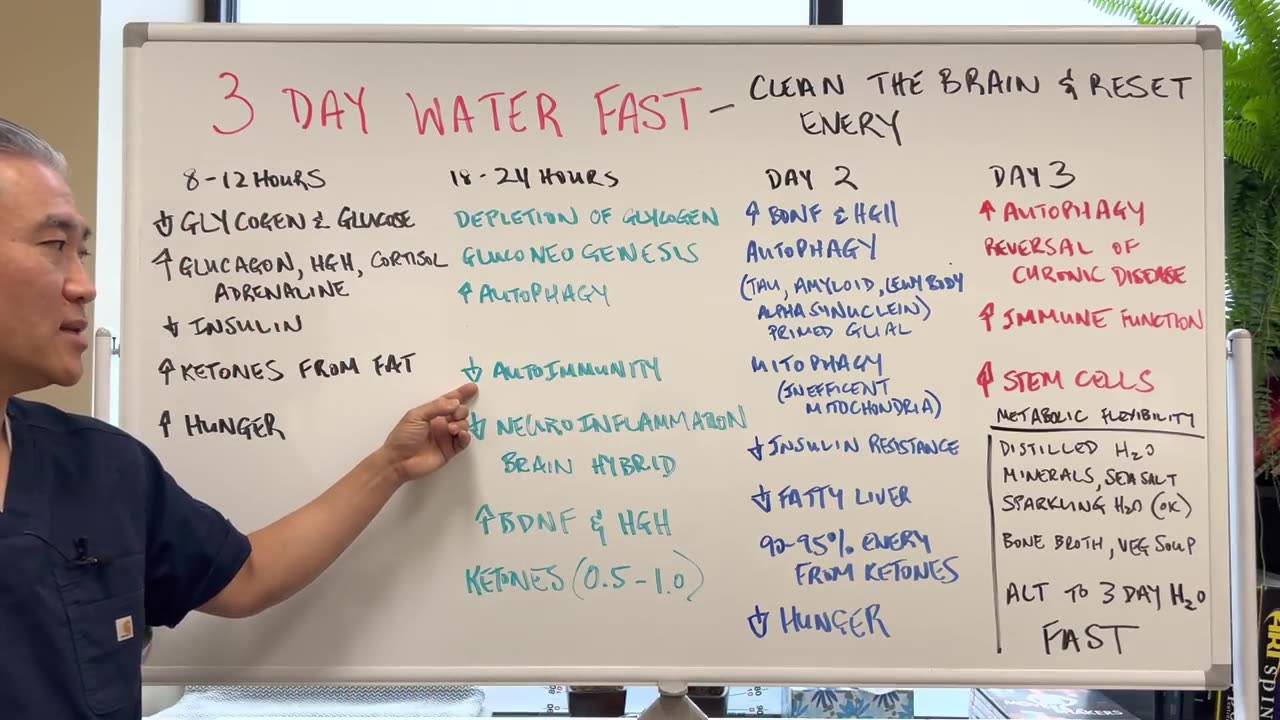 3 DAY WATER FAST - CLEAN THE BRAIN & RESET
ENERY
8-12 HOURS
↓ GLYCOGEN & GLUCOSE
↑ GLUCAGON, HGH, CORTISOL
ADRENALINE
↓ INSULIN
↑ KETONES FROM FAT
↑ HUNGER
18-24 HOURS
DEPLETION OF GLYCOGEN
GLUCONEOGENESIS
↑ AUTOPHAGY
↓ AUTOIMMUNITY
↓ NEUROINFLAMMATION
BRAIN HYBRID
↑ BDNF & HGH
KETONES (0.5-1.0)
DAY 2
↑ BDNF & HGH
AUTOPHAGY
(TAU, AMYLOID, LEWY BODY
ALPHA SYNUCLEIN)
PRIMED GLIAL
MITOPHAGY
(INEFFICENT
MITOCHONDRIA)
↓ INSULIN RESISTANCE
↓ FATTY LIVER
90-95% ENERY
FROM KETONES
↓ HUNGER
DAY 3
↑ AUTOPHAGY
REVERSAL OF
CHRONIC DISEASE
↑ IMMUNE FUNCTION
↑ STEM CELLS
METABOLIC FLEXIBILITY
DISTILLED H2O
MINERALS, SEA SALT
SPARKLING H2O (OK)
BONE BROTH, VEG SOUP
ALT TO 3 DAY H2O
FAST